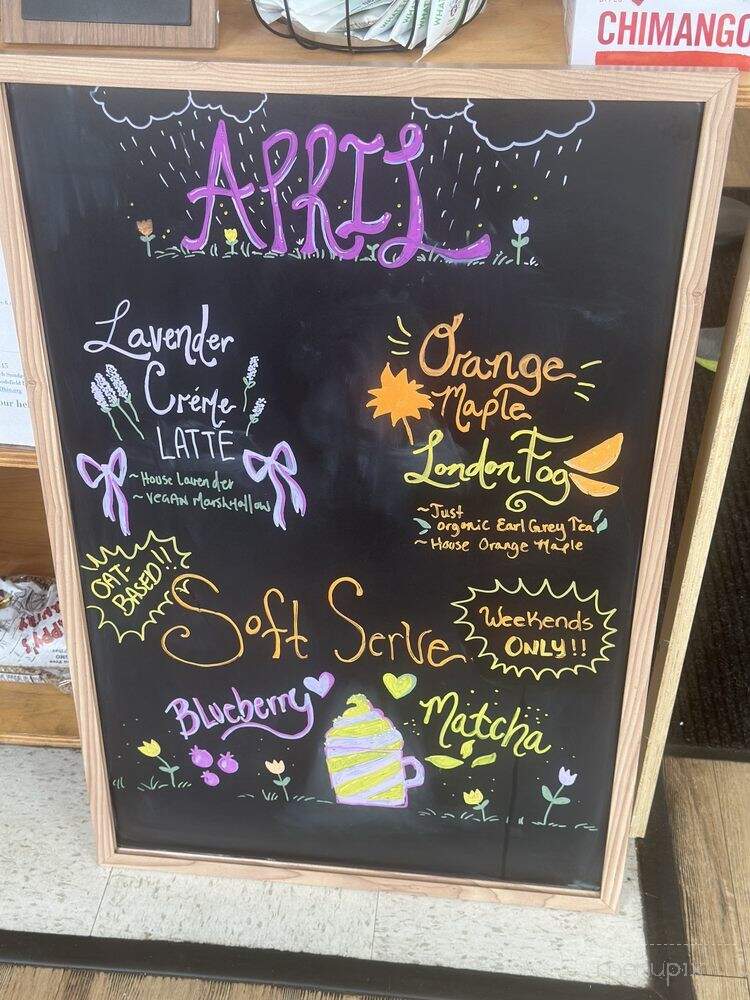 CHIMANGO
APRIL
Lavender
Créme
LATTE
~House Lavender
~VEGAN Marshmallow
Orange
Maple
London Fog
~Just
organic Earl Grey Tea
~House Orange Maple
OAT-
BASED!!
Soft Serve
Weekends
ONLY!!
Blueberry
Matcha